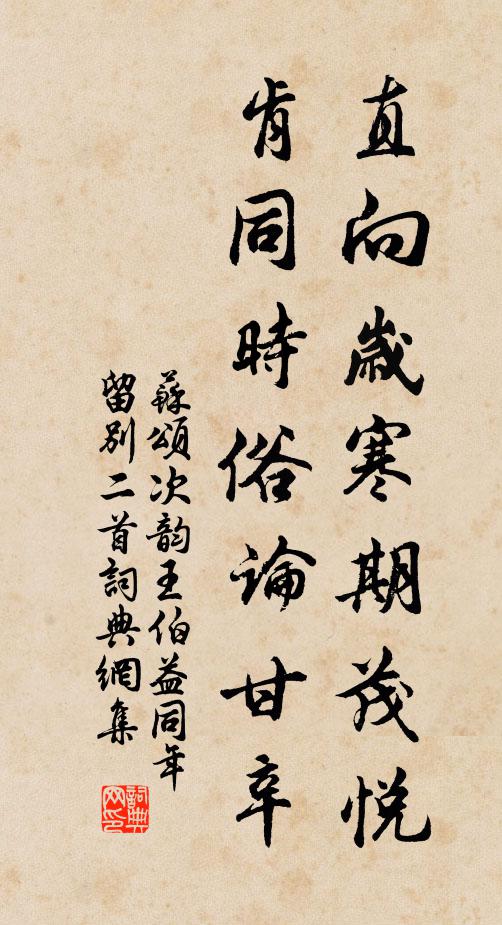 直向歲寒期茂悅
肯同時俗論甘辛
蘇頌次韵王伯益同年
留別二首詞典網集
詞典网印